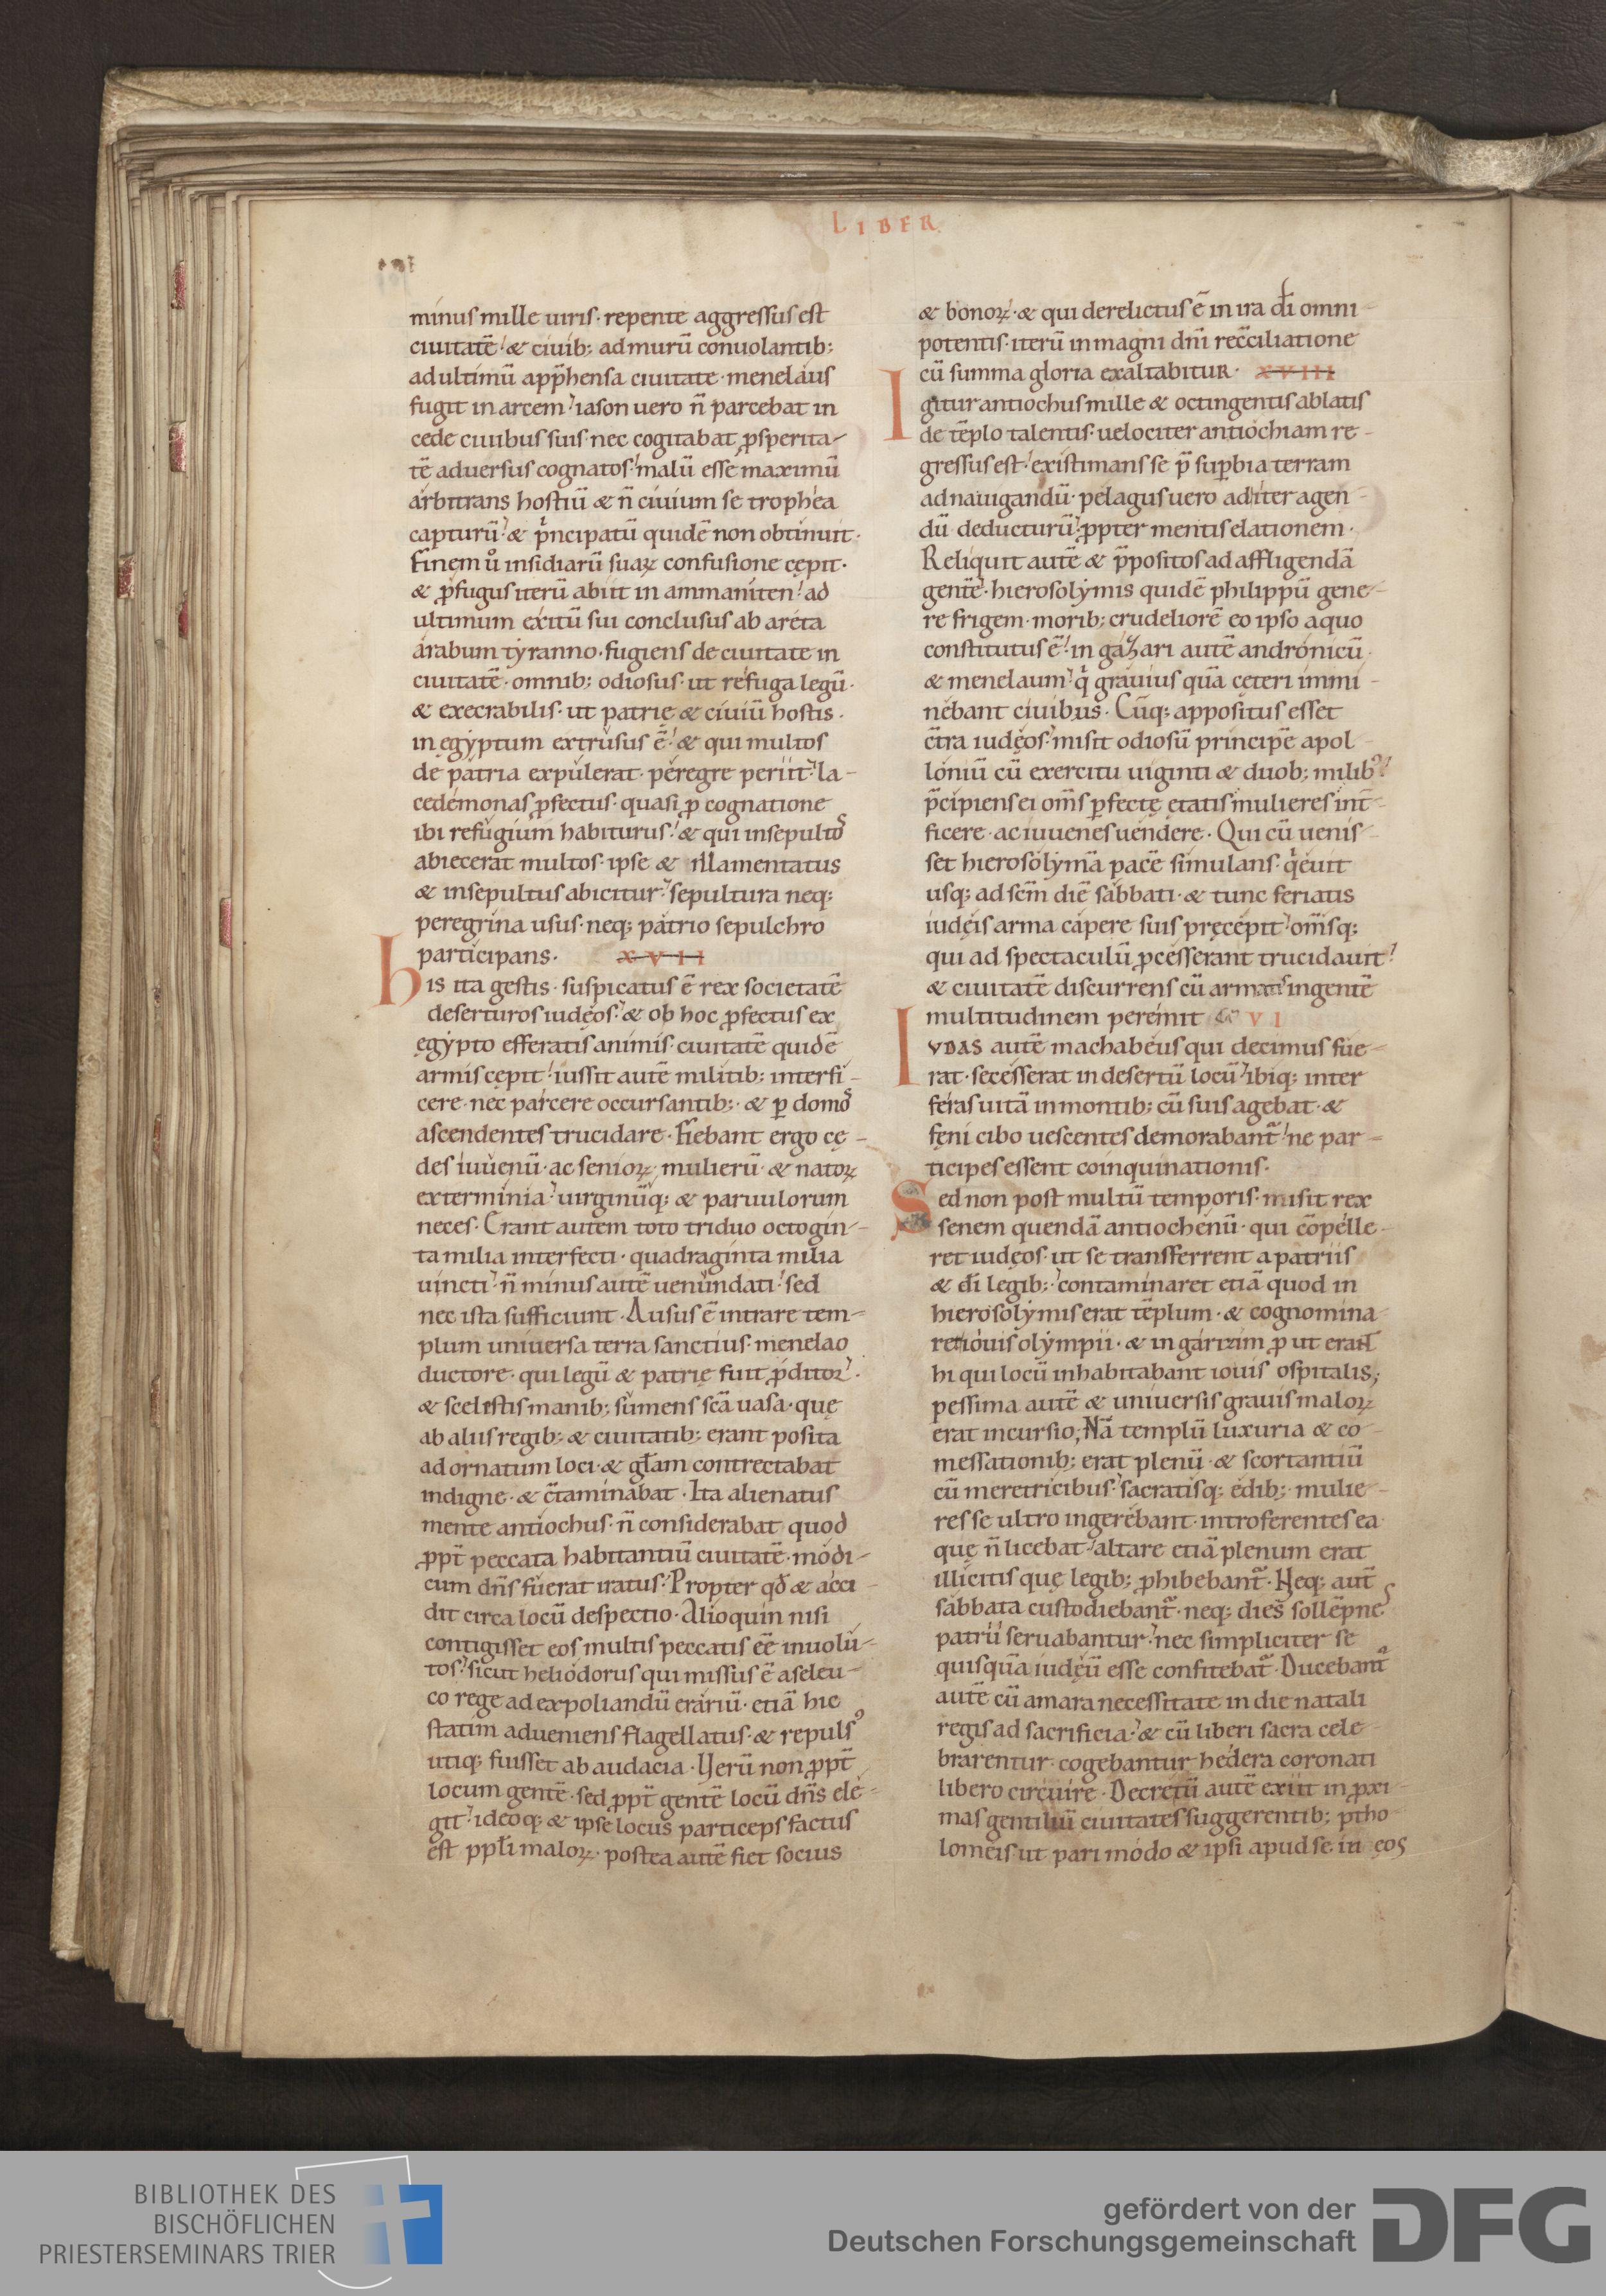 LIBER
minus mille uiris· repente aggressus est
ciuitatē· & ciuib; ad murū conuolantib;
ad ultimū app̄hensa ciuitate· menelaus
fugit in arcem· iason uero n̄ parcebat in
cede ciuibus suis· nec cogitabat ꝓsperita-
tē aduersus cognatos· malū esse maximū
arbitrans hostiū & n̄ ciuium se trophea
capturū· & pͥncipatū quidē non obtinuit·
Finem u̾o insidiarū suaꝝ confusione cępit·
& ꝓfugus iterū abiit in ammaniten· ad
ultimum exitū sui conclusus ab areta
arabum tyranno· fugiens de ciuitate in
ciuitatē· omnib; odiosus· ut refuga legū·
& execrabilis· ut patrię & ciuiū hostis·
in ęgyptum extrusus ē· & qui multos
de patria expulerat· peregre periit· la-
cedemonas ꝓfectus· quasi ꝓ cognatione
ibi refugium habiturus· & qui insepultos
abiecerat multos· ipse & illamentatus
& insepultus abicitur· sepultura neq;
peregrina usus· neq; patrio sepulchro
participans· XVII
His ita gestis· suspicatus ē rex societatē
deserturos iudęos· & ob hoc ꝓfectus ex
ęgypto efferatis animis· ciuitatē quidē
armis cępit· iussit autē militib; interfi-
cere· nec parcere occursantib;· & ꝑ domos
ascendentes trucidare· Fiebant ergo cę-
des iuuenū· ac senioꝝ· mulierū· & natoꝝ
exterminia· uirginūq; & paruulorum
neces· Erant autem toto triduo octogin-
ta milia interfecti· quadraginta milia
uincti· n̄ minus autē uenundati· sed
nec ista sufficiunt· Ausus ē intrare tem-
plum uniuersa terra sanctius· menelao
ductore· qui legū & patrię fuit ꝓditor·
& scelestis manib; sumens sc̄a uasa· quę
ab aliis regib; & ciuitatib; erant posita
ad ornatum loci· & gl̄am contrectabat
indigne· & c̄taminabat· Ita alienatus
mente antiochus· n̄ considerabat quod
ꝓpt̄ peccata habitantiū ciuitatē· modi-
cum dn̄s fuerat iratus· Propter qđ & acci-
dit circa locū despectio· Alioquin nisi
contigisset eos multis peccatis eē inuolu-
tos· sicut heliodorus qui missus ē a seleu-
co rege ad expoliandū erariū· etiā hic
statim adueniens flagellatus· & repulsꝰ
utiq; fuisset ab audacia· Uerū non ꝓpt̄
locum gentē· sed ꝓpt̄ gentē locū dn̄s ele-
git· ideoq; & ipse locus particeps factus
est ppl̄i maloꝝ· postea autē fiet socius
& bonoꝝ· & qui derelictus ē in ira dī omni-
potentis· iterū in magni dn̄i rec̄ciliatione
cū summa gloria exaltabitur· XVIII
Igitur antiochus mille & octingentis ablatis
de tēplo talentis· uelociter antiochiam re-
gressus est· existimans se p̄ suꝑbia terram
ad nauigandū· pelagus uero ad iter agen-
dū deducturū· ꝓpter mentis elationem·
Reliquit autē & p̄positos ad affligendā
gentē· hierosolymis quidē philippū gene-
re frigem· morib; crudeliorē eo ipso a quo
constitutus ē· in gazari autē andronicū
& menelaum· qͥ grauius quā cęteri immi-
nebant ciuibus· Cūq; appositus esset
c̄tra iudęos· misit odiosū principē apol-
loniū cū exercitu uiginti & duob; milibꝰ·
p̄cipiens ei om̄s ꝑfectę etatis mulieres int̄-
ficere· ac iuuenes uendere· Qui cū uenis-
set hierosolymā pacē simulans· qͥeuit
usq; ad sc̄m diē sabbati· & tunc feriatis
iudęis arma capere suis pręcepit· om̄sq;
qui ad spectaculū ꝓcesserant trucidauit·
& ciuitatē discurrens cū armatis ingentē
multitudinem peremit VI
IVDAS autē machabeus qui decimus fue-
rat· secesserat in desertū locū· ibiq; inter
feras uitā in montib; cū suis agebat· &
fęni cibo uescentes demorabant̄· ne par-
ticipes essent coinquinationis·
Sed non post multū temporis· misit rex
senem quendā antiochenū· qui cōpelle-
ret iudęos· ut se transferrent a patriis
& dī legib;· contaminaret etiā quod in
hierosolymis erat tēplum· & cognomina-
ret iouis olympii· & in garizim ꝓ ut erant
hi qui locū inhabitabant iouis ospitalis;
pessima autē & uniuersis grauis maloꝝ
erat incursio; Nā templū luxuria & co-
messationib; erat plenū· & scortantiū
cū meretricibus· sacratisq; edib;· mulie-
res se ultro ingerebant· introferentes ea
quę n̄ licebat· altare etiā plenum erat
illicitis quę legib; ꝓhibebant̄· Neq; aut̄
sabbata custodiebant̄· neq; dies sollēpnes
patrū seruabantur· nec simpliciter se
quisquā iudęū esse confitebat̄· Ducebant̄
autē cū amara necessitate in die natali
regis ad sacrificia· & cū liberi sacra cele-
brarentur· cogebantur hedera coronati
libero circuire· Decretū autē exiit in ꝓxi-
mas gentiliū ciuitates suggerentib; ptho-
lomeis ut pari modo & ipsi apud se in eos
BIBLIOTHEK DES
BISCHÖFLICHEN
PRIESTERSEMINARS TRIER
gefördert von der
Deutschen Forschungsgemeinschaft
DFG